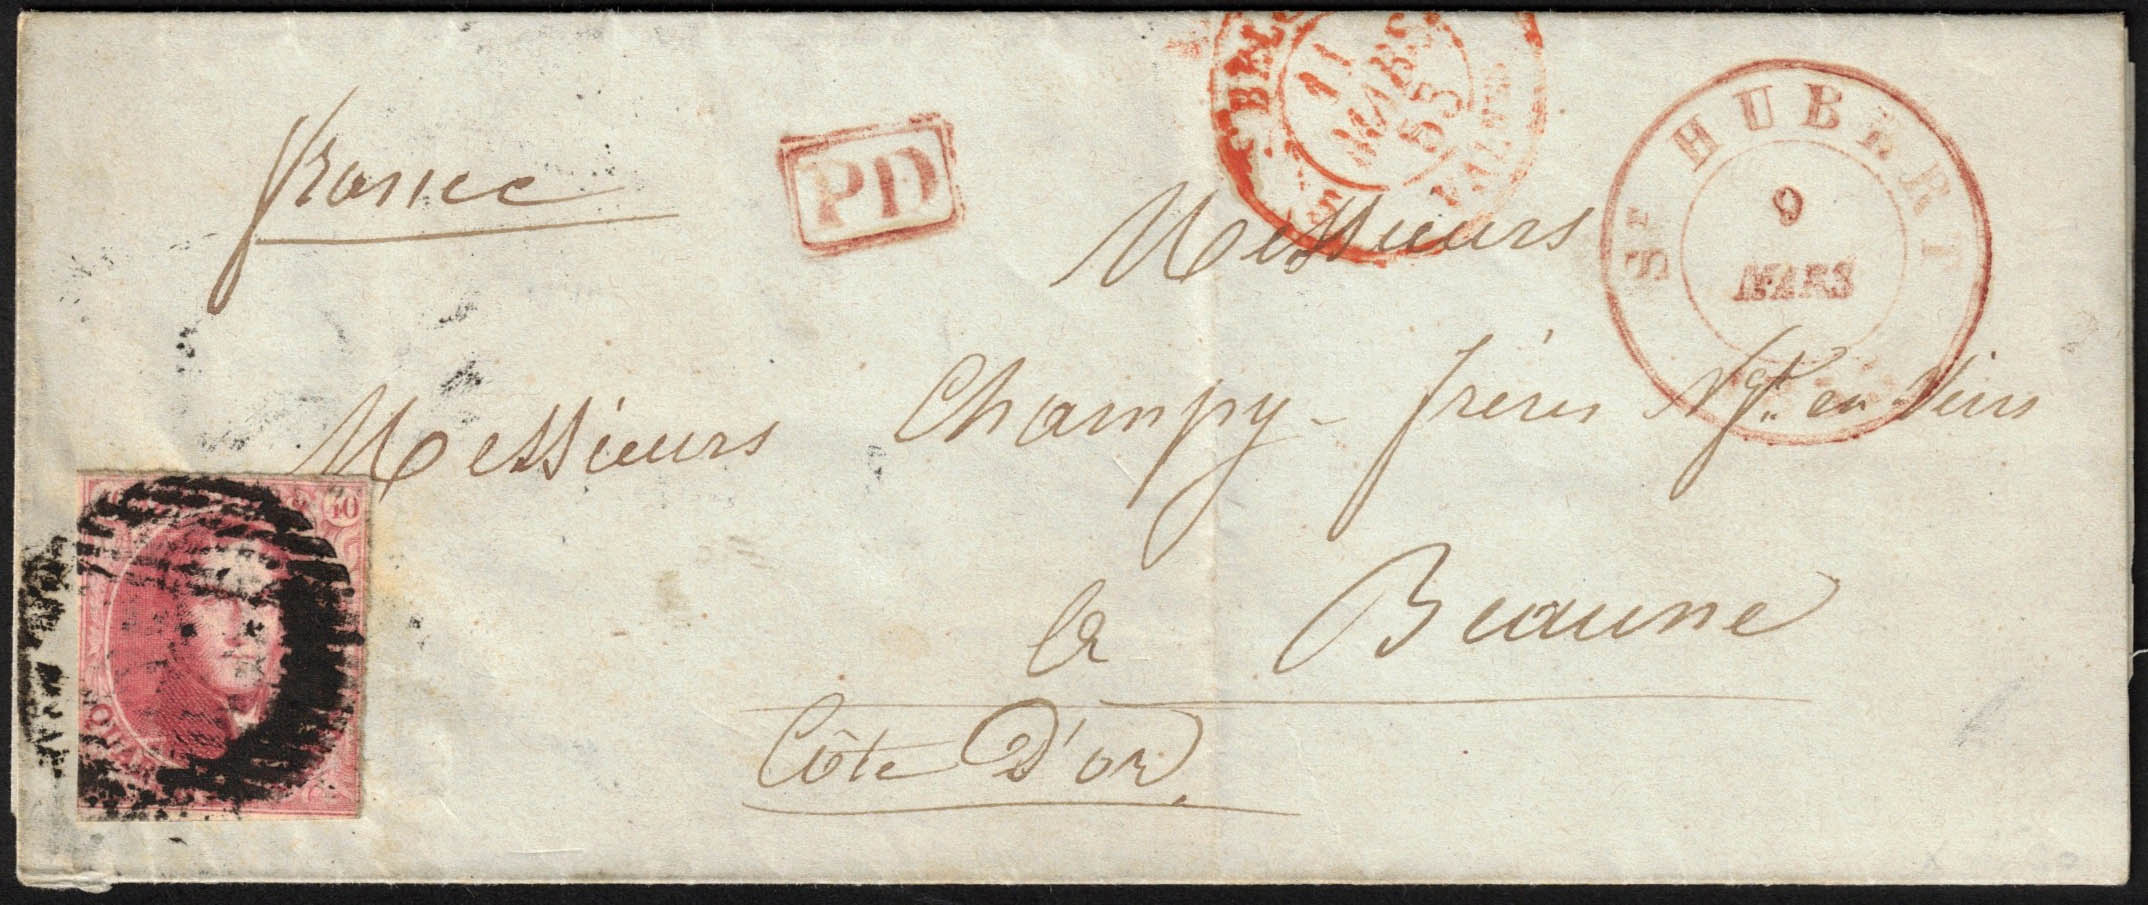 france
PD
BELG
11
MARS
53
VALENC
ST HUBERT
9
MARS
Messieurs
Messieurs Champy - frères Ngt. en Vins
à Beaune
Côte D'or.
40